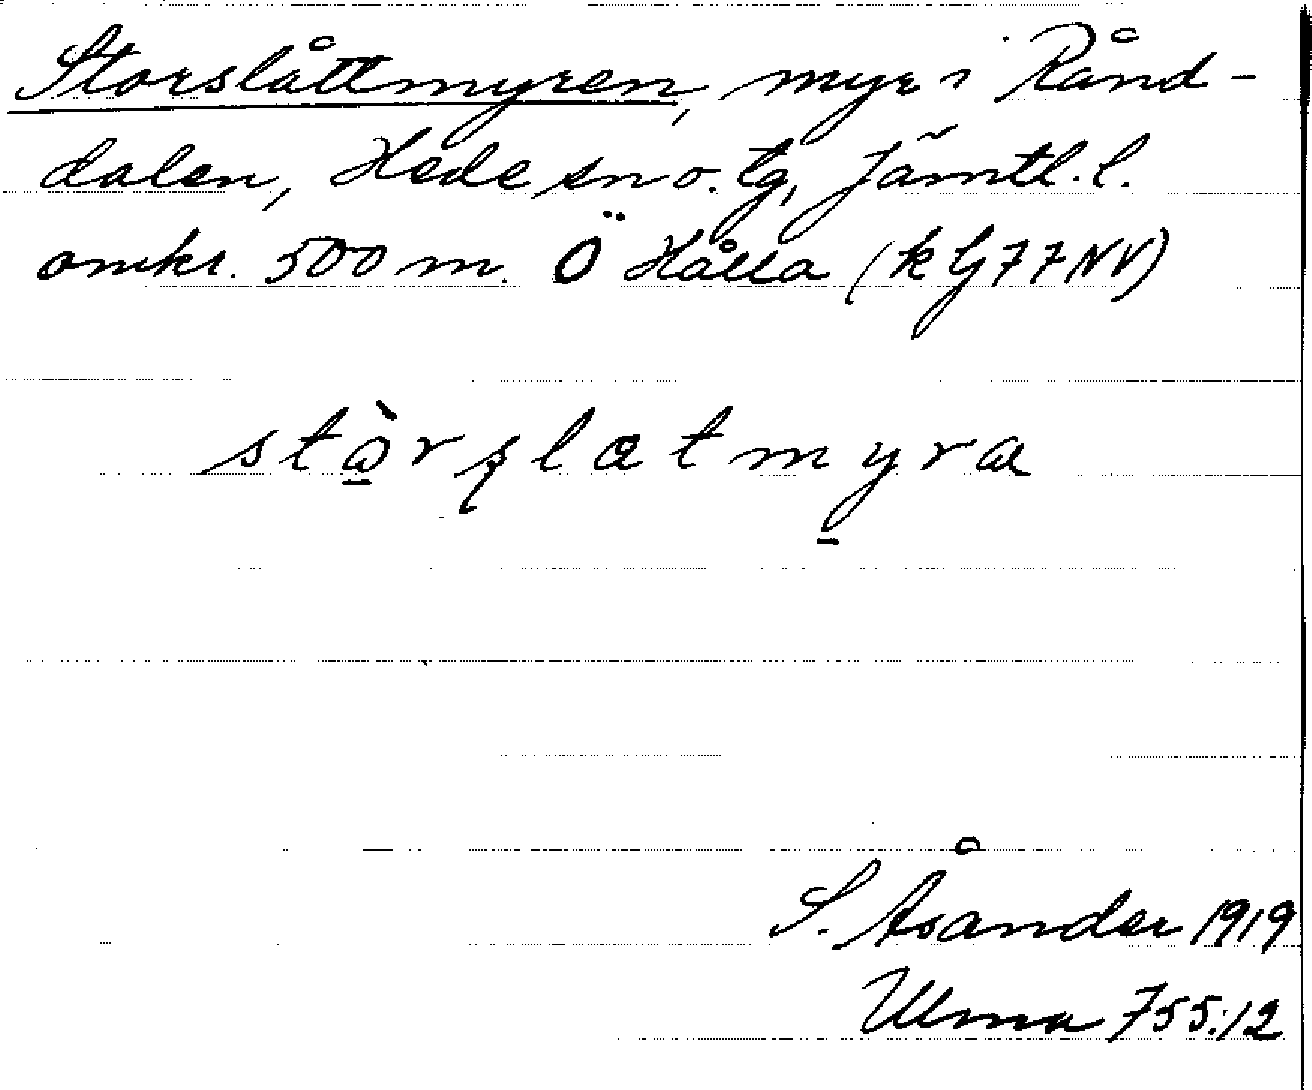 Storslåttmyren, myr i Rånd-
dalen, Hede sn o. tg, Jämtl. l.
omkr. 500 m. Ö Hålla (k G 77 NV)
stɷ̠̀rʂlatmy̠ra
S. Åsander 1919
Ulma 755:12